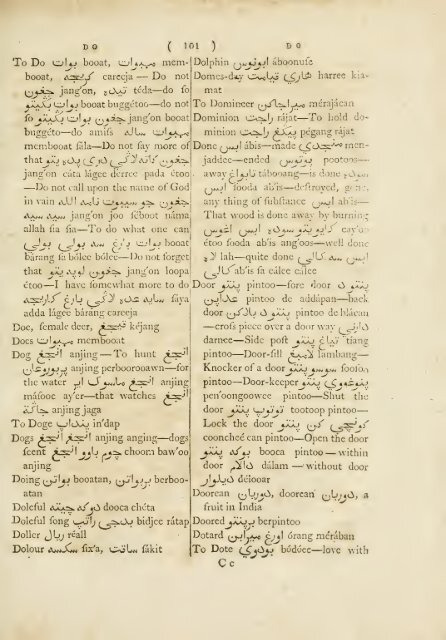 D O ( 101 ) D O
To Do بوات booat, ممبوات mem-
booat, كرجاي careeja — Do not
جاڠن jang'on, تيده téda—do so
بوات بگيتو booat buggétoo—do not
so جاڠن بوات بگيتو jang'on booat
buggéto—do amiss ممبوات ساله
membooat sàla—Do not say more of
that جاڠن كات لاگي دري پد ايت
jang'on cáta lágee derree pada étoo
—Do not call upon the name of God
in vain جاڠن سيبوت نام الله
سيه سيه jang'on joo séboot náma
allah sia sia—To do what one can
بوات بارڠ سه بولي بولي booat
bárang sa bólee bólee—Do not forget
that جاڠن لوپ ايت jang'on loopa
étoo—I have somewhat more to do
ساي اد لاگي بارڠ كرجا sáya
adda lágee bárang careeja
Doe, female deer, كيجڠ kéjang
Does ممبوات membooat
Dog انجڠ anjing—To hunt انجڠ
anjing perboorooawn—for
the water انجڠ ماسوك اير anjing
másooc ay'er—that watches انجڠ
جاگ anjing jaga
To Doge اينداپ in'dap
Dogs انجڠ انجڠ anjing anging—dogs
scent چوم باو انجڠ choom baw'oo
anjing
Doing بواتن booatan, بربواتن berboo-
atan
Doleful دوك چيت dooca chéta
Doleful song بيدجي راتپ bidjee rátap
Doller ريال réall
Dolour سكس six'a, ساكت sákit
Dolphin ابونوس áboonuse
Domes-day هاري قيامت harree kia-
mat
To Domineer ميراجاكن mérajácan
Dominion راجت rájat—To hold do-
minion پيگڠ راجت pégang rájat
Done ابس ábis—made منجدي men-
jaddee—ended پوتوس pootoos—
away تابوڠ tábooang—is done سوده
ابس sooda ab'is—destroyed, gone,
any thing of substance ابس ab'is—
That wood is done away by burning
كايو ايت سوده ابس اڠوس cay'oo
étoo sooda ab'is ang'oos—well done
له lah—quite done ابس سه كالي
كالي ab'is sa cálee cálee
Door پنتو pintoo—fore door پنتو د
عداپن pintoo de addápan—back
door پنتو د بلاكن pintoo de blácan
—cross piece over a door way دارني
darnee—Side post تياڠ پنتو tiang
pintoo—Door-sill لامبڠ lambang—
Knocker of a door سوسو پنتو soosoo
pintoo—Door-keeper پنوڠو پنتو
pen'oongoowee pintoo—Shut the
door توتوپ پنتو tootoop pintoo—
Lock the door كونچي كن پنتو
cooncheé can pintoo—Open the door
بوك پنتو booca pintoo — within
door دالم dálam — without door
ديلوار délooar
Doorean دوريان, doorean دوريان, a
fruit in India
Doored برپنتو berpintoo
Dotard اورڠ ميرابن órang mérában
To Dote بودوي bódóee—love with
C c